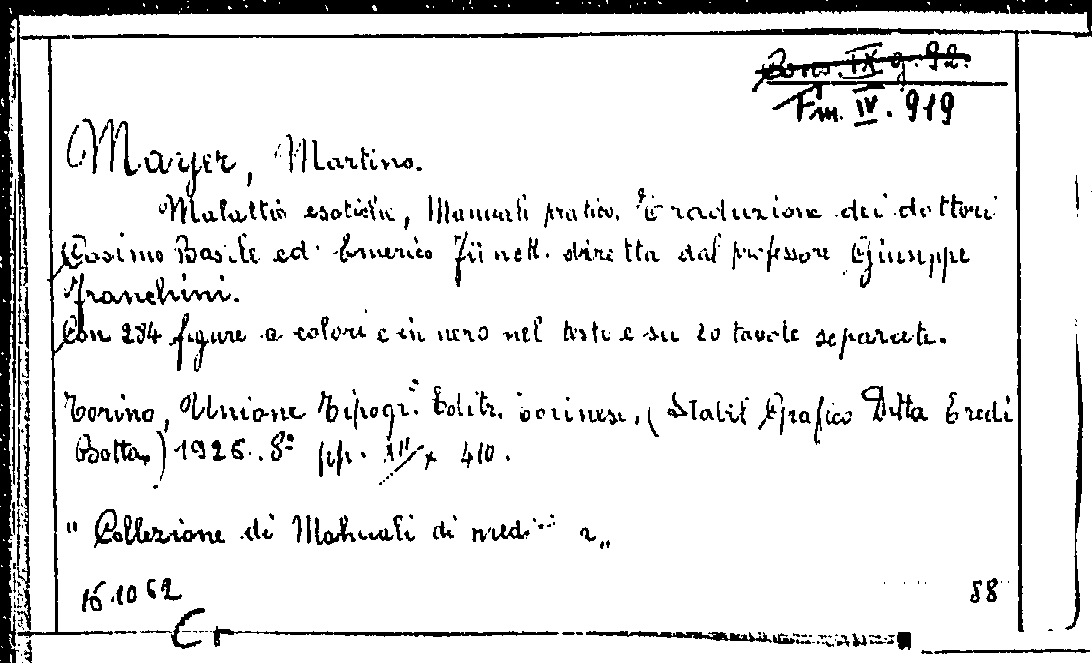 Bons. IX g. 92.
Fm. IV. 919
Mayer, Martino.
Malattie esotiche, Manuale pratico. Traduzione dei dottori
Cosimo Basile ed Emerico diretta dal professore Giuseppe
Franchini.
Con 284 figure a colori e in nero nel testo e su 20 tavole separate.
Torino, Unione Tipogr. Editr. Torinese, (Stabil Grafico Ditta Eredi
Botta,) 1926. 8° pp. XII 410.
" Collezione di Manuali di „
161062
88